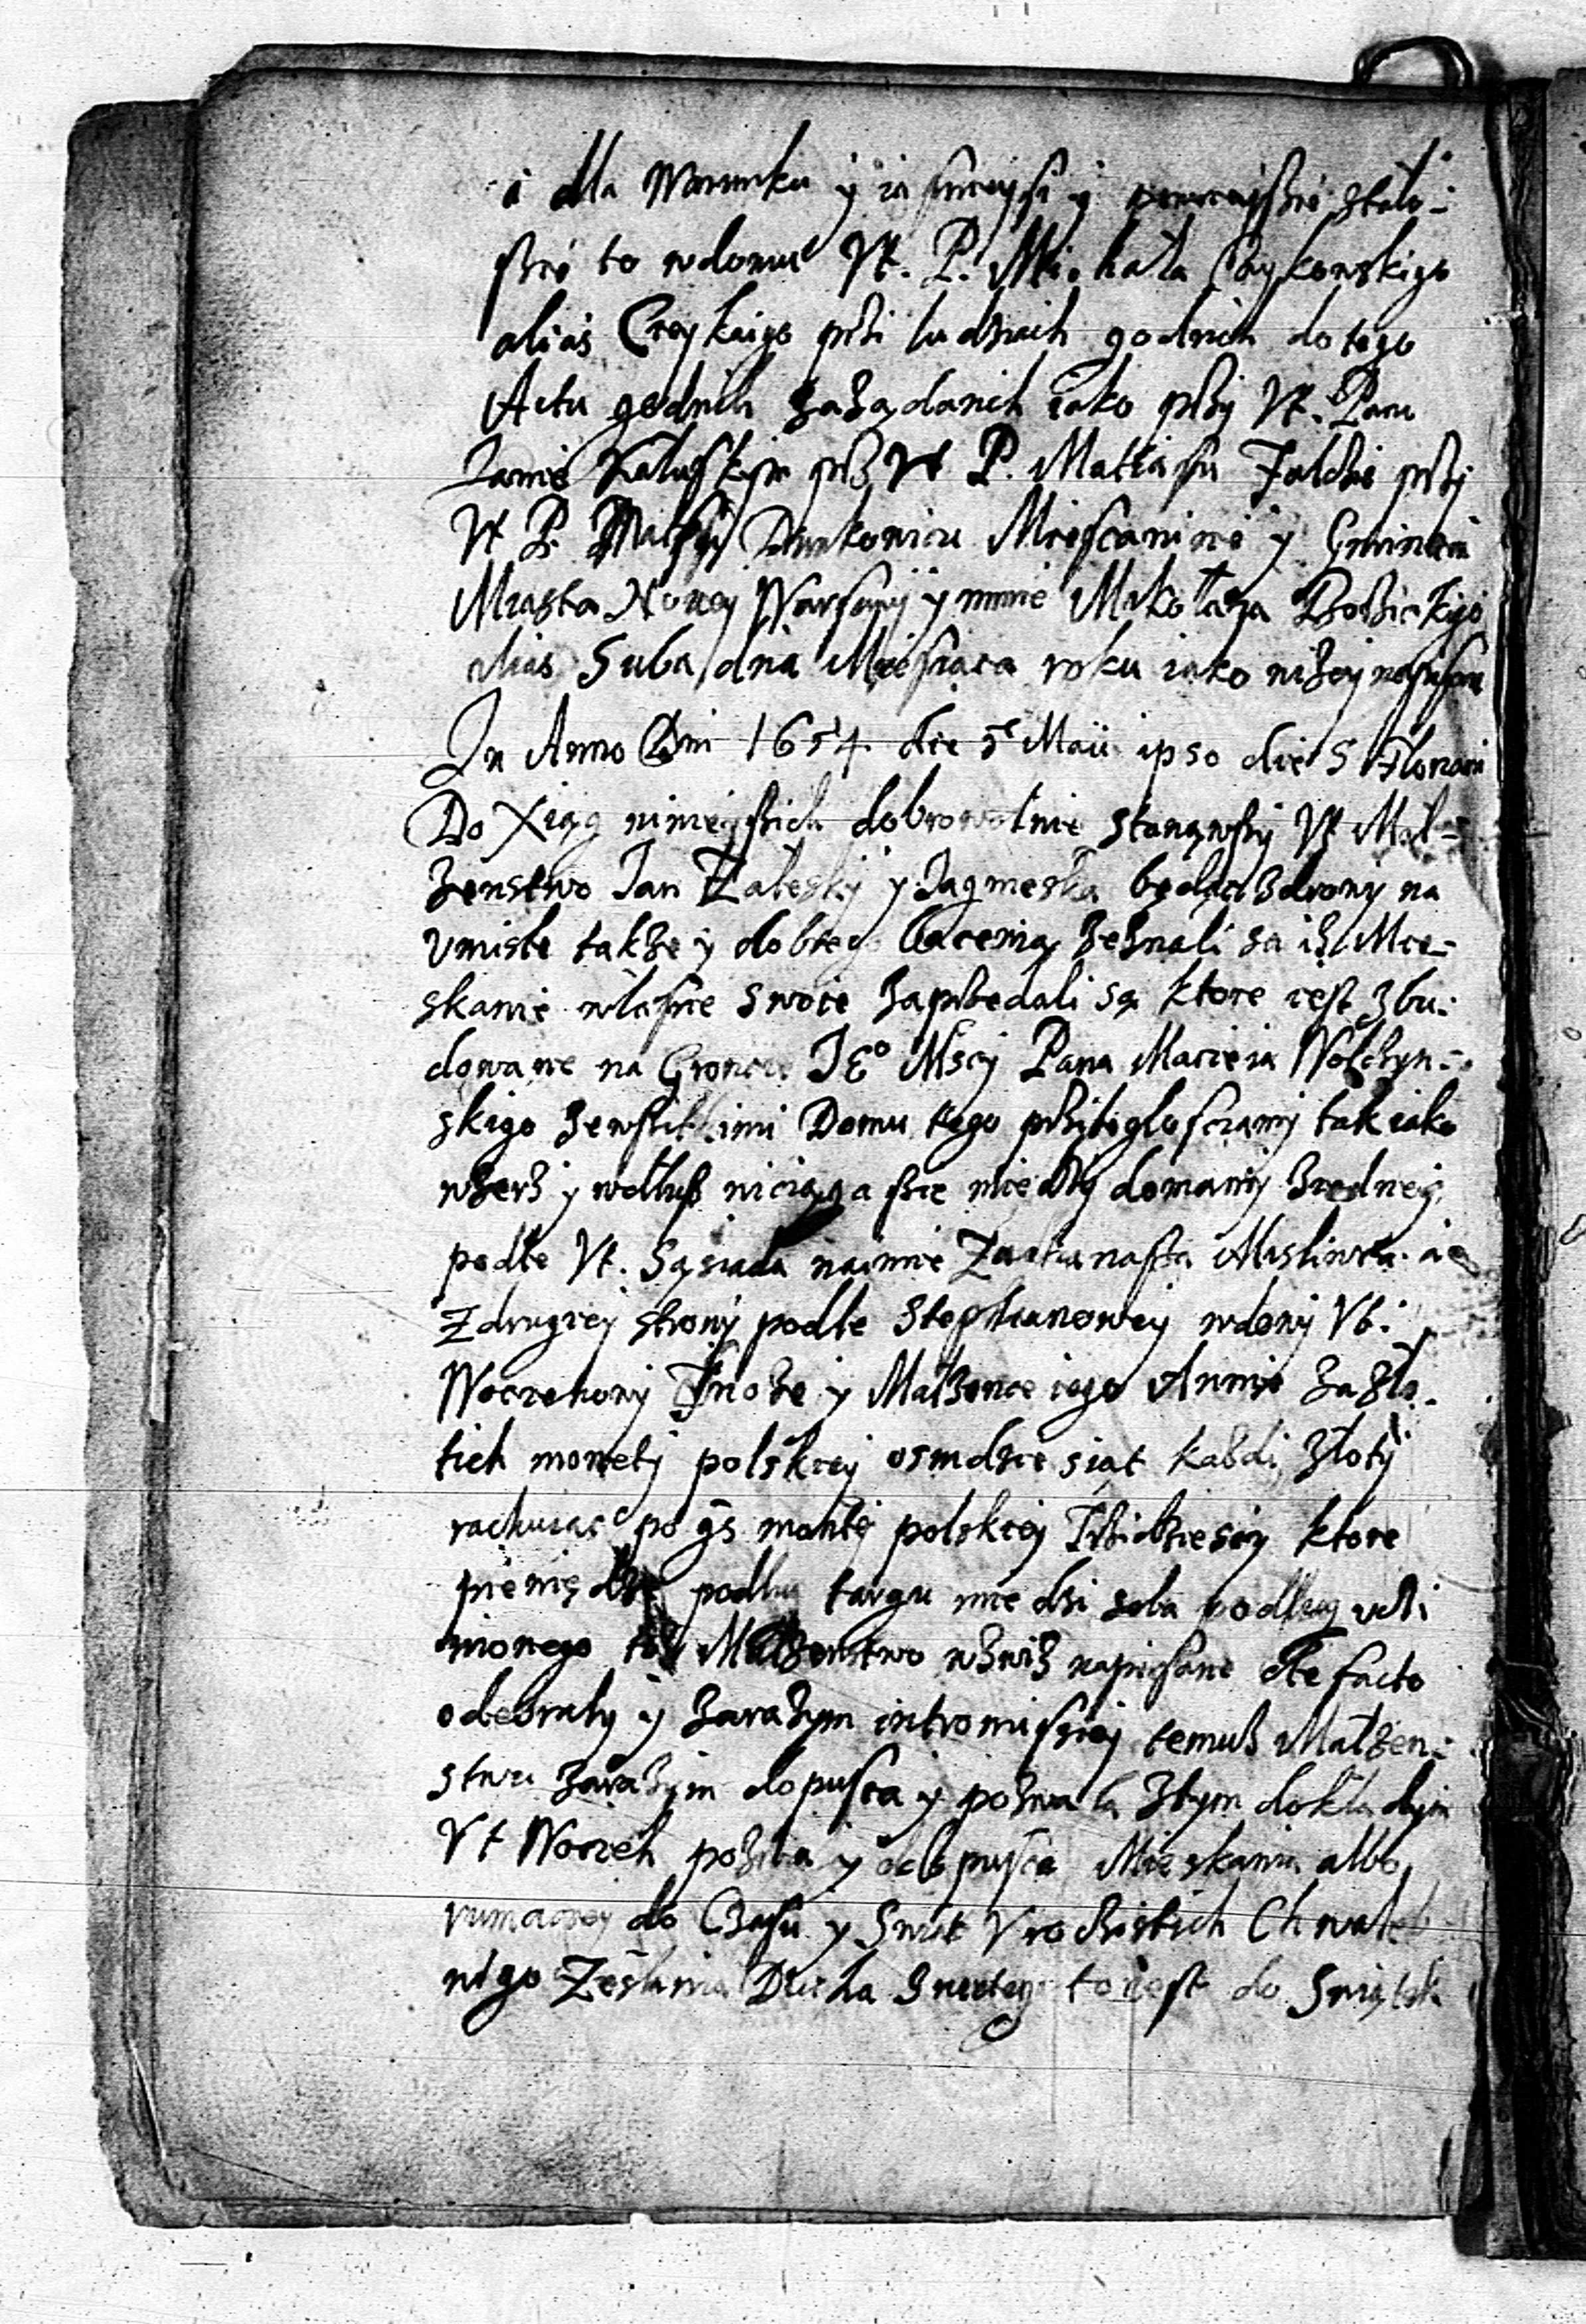 i dla Warunku y iasnieyszi y
szie to wdomu Vt. P. Michała Czykowskigo
alias Czeykaigo przi ludziach godnich do tego
Actu godnich zaządanich iako przy Vt. Panu
Janie Załuskym prz Vt P. Matiaszu Falczi przy
Vt P. Mieszcaninie y Gminnim
Miasta Nowey Warszawy y mnie Mikołaya
alias Suba dnia Miesiąca roku iako niżey napisano
In Anno Dni 1654 die 5 Maii ipso die S Floriani
Do Xiąg ninieyszich dobrowolnie stanąwszy Vt Mał-
zenstwo Jan Zaleskÿ y Jagnieska będąci zdrowy na
Vmisle także y dobreg Bacenią zeznali za iż Mie-
skanie własne swoie zaprzedali są ktore iest zbu-
dowane na Groncie JEº Mści Pana Macieia Wolczyn-
skigo zewszitkimi Domu tego prziległosciami tak iako
wszerz y wdłusz wiciąga szie miedzy domamy ziedney
podle Vt. Sąsiada naimie Mislinka a
Zdrugiey strony podle Stephanowey wdowy Vt.
Woczechowy y Małzonce iego Annie za zło-
tich monety polskiey osmdzie siąt kazdi złoty
rachuiac po gs monty polskiey Trzidziesci ktore
pieniędze podlug targu mie dzi soba podlug vczi
nionego toż Małzenstwo wzwisz napisane De facto
odebrały y zarazym intromissiey temuż Małzen-
stwu zarazym dopusca y pozwala ztym dokładym
Vt Woczeh pozwala y dopusca Mieskania albo
do Czasu y Swiąt Vroczistich Chwaleb
nigo Zesłania Ducha Swietego to iest do Swiątek